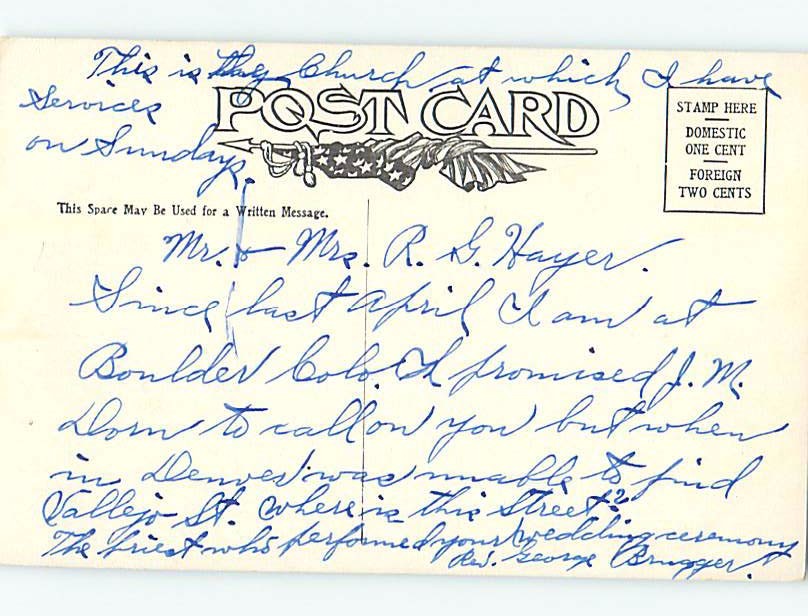 This is the Church at which I have
Services
on Sundays.
POST CARD
STAMP HERE
DOMESTIC
ONE CENT
FOREIGN
TWO CENTS
This Space May Be Used for a Written Message.
Mr. & Mrs. R. G. Hayer.
Since last April I am at
Boulder Colo. I promised J. M.
Dorn to call on you but when
in Denver was unable to find
Vallejo St. Where is this Street?
The priest who performed your wedding ceremony
Rev. George Brugger.